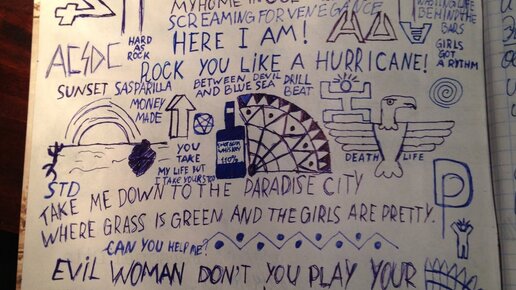 MY HOME IN OUR
SCREAMING FOR VENEGANCE
HERE I AM!
WASTING LIFE
BEHIND THE
BARS
AC⚡DC
HARD
AS
ROCK
ROCK YOU LIKE A HURRICANE!
GIRLS
GOT
A RYTHM
SUNSET SASPARILLA
BETWEEN DEVIL
AND BLUE SEA
DRILL
BEAT
MONEY
MADE
YOU
TAKE
MY LIFE BUT
I TAKE YOURS TOO
DEATH LIFE
STD
TAKE ME DOWN TO THE PARADISE CITY
WHERE GRASS IS GREEN AND THE GIRLS ARE PRETTY.
CAN YOU HELP ME?
EVIL WOMAN DON'T YOU PLAY YOUR